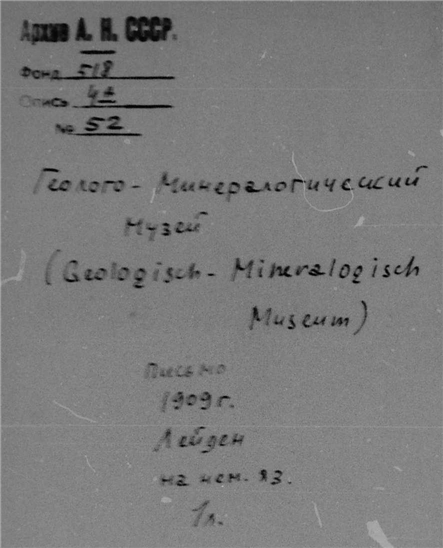 Архив А. Н. СССР.
Фонд 518
Опись 4а
№ 52
Геолого-Минералогический
Музей
(Geologisch-Mineralogisch
Museum)
Письмо
1909 г.
Лейден
на нем. яз.
1 л.